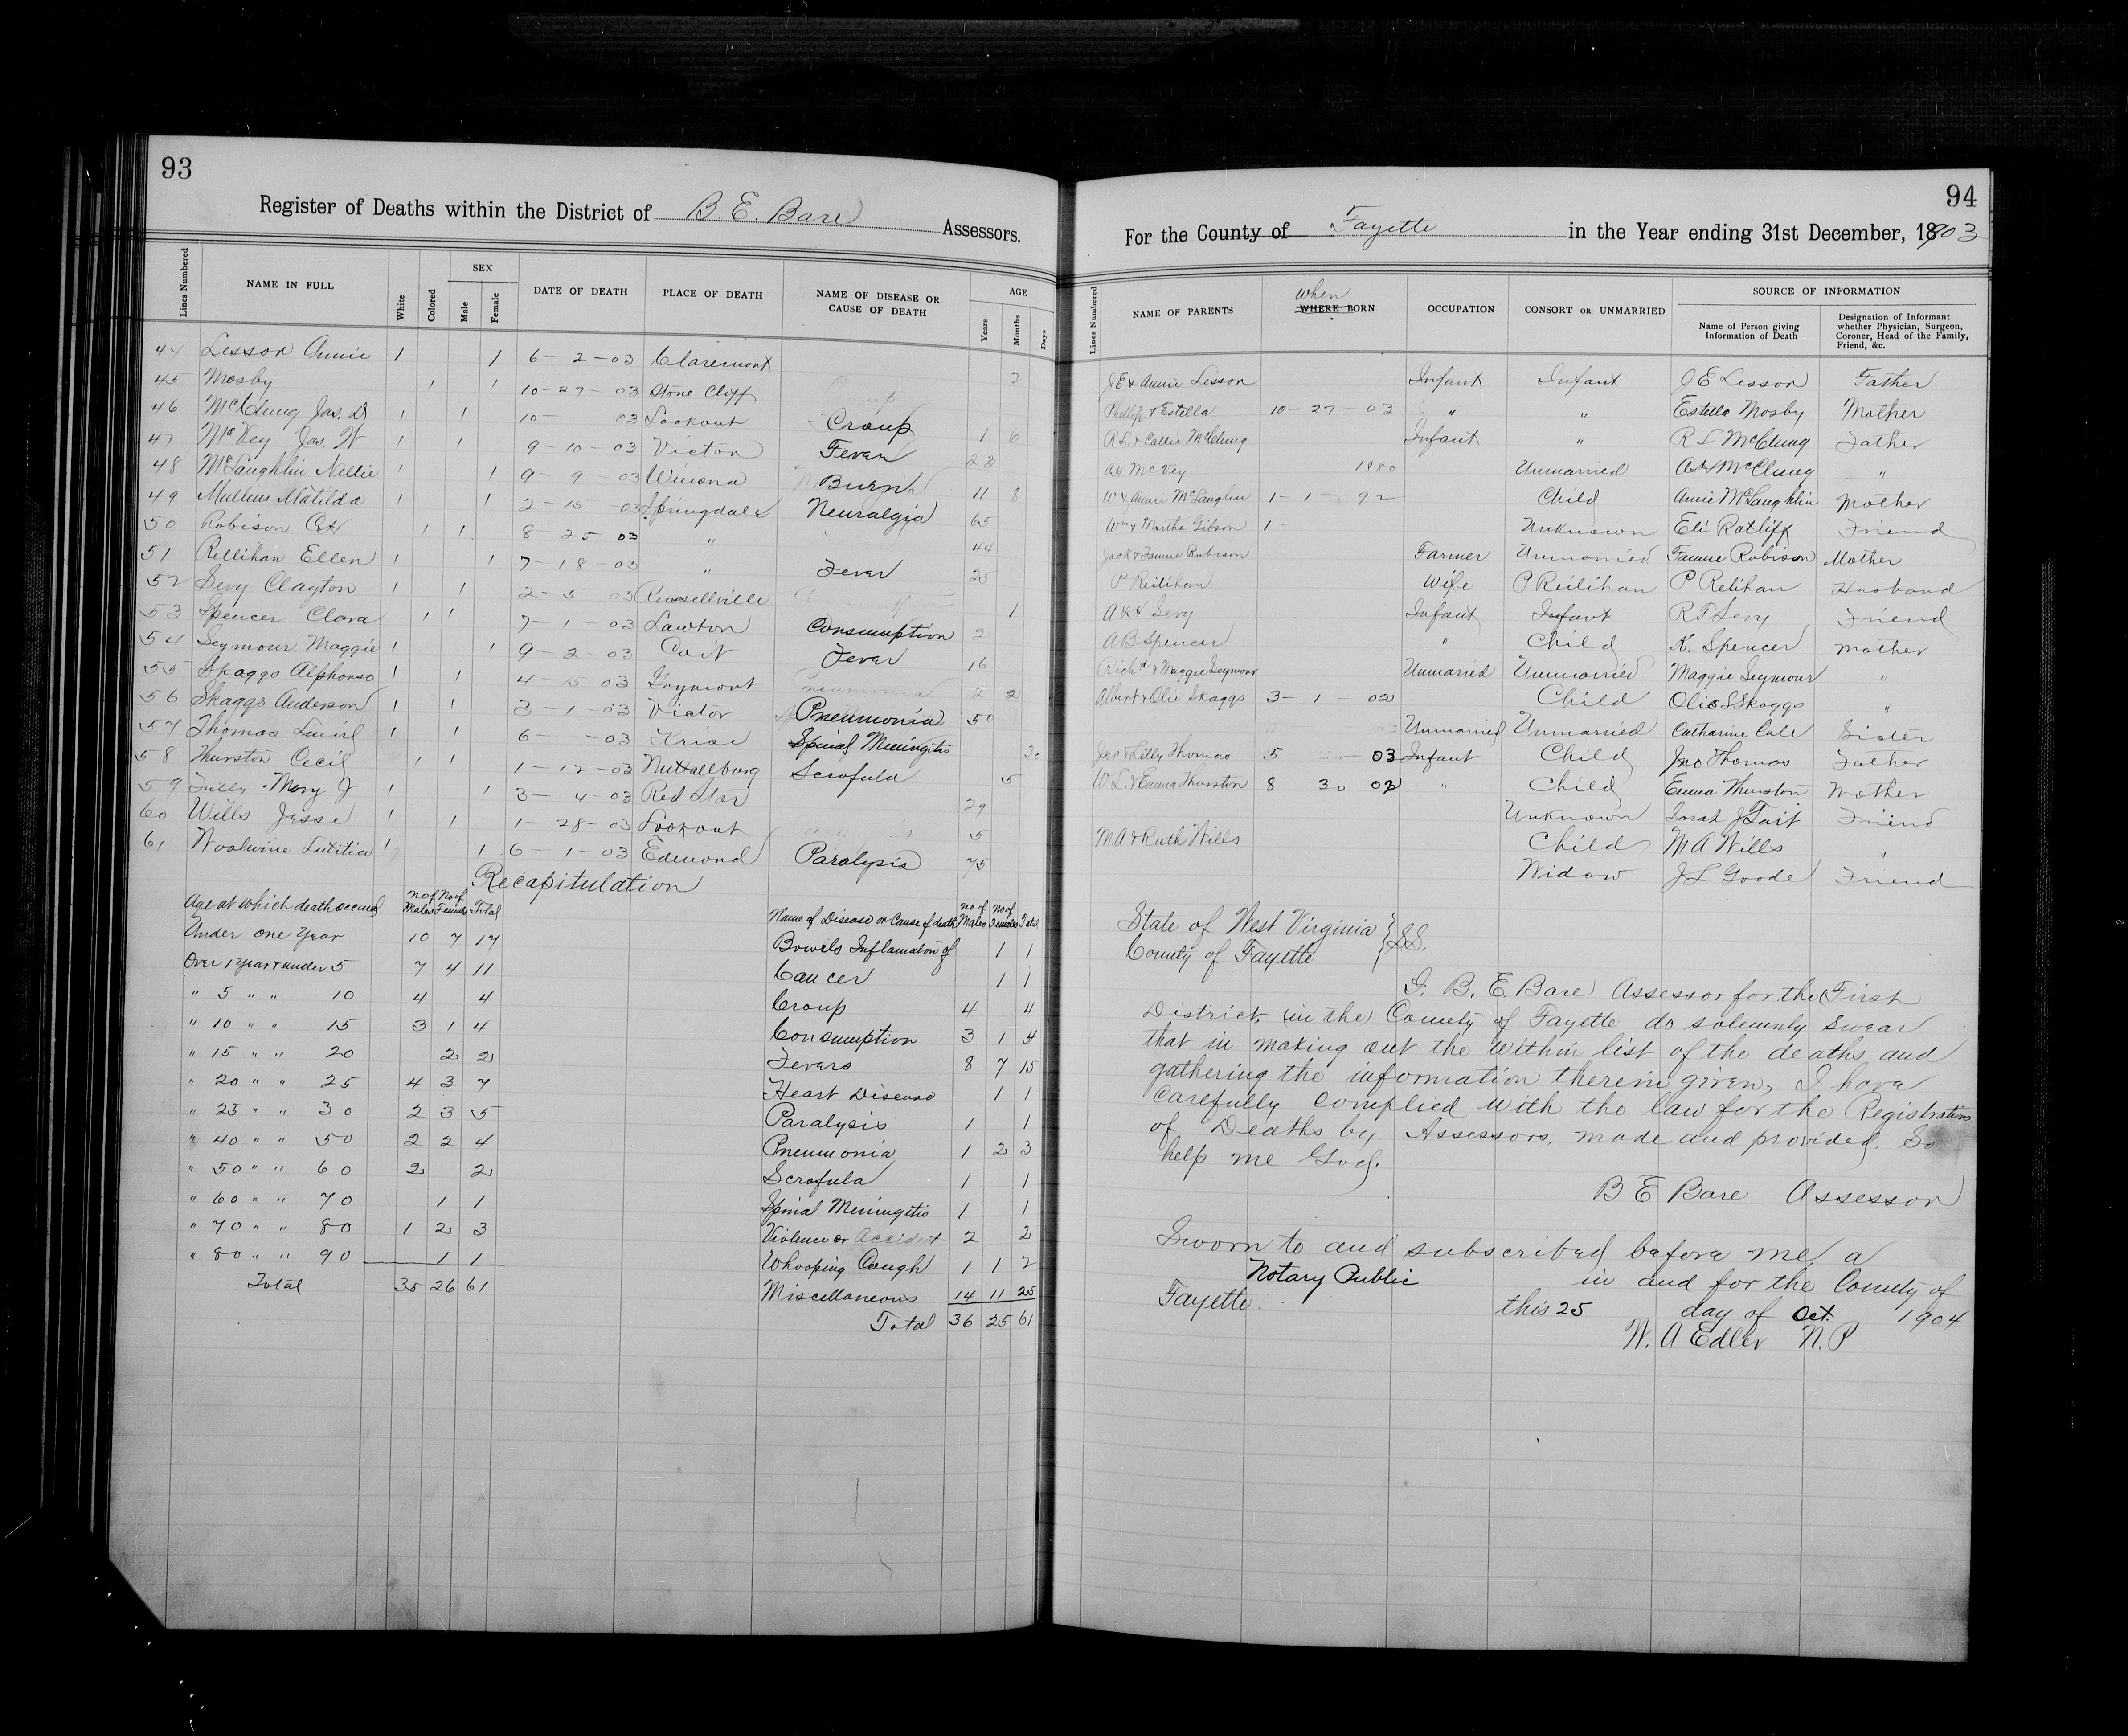 93
Register of Deaths within the District of B. E. Bare Assessors.
Lines Numbered NAME IN FULL White Colored SEX Male Female DATE OF DEATH PLACE OF DEATH NAME OF DISEASE OR CAUSE OF DEATH AGE Years Months Days
44 Lesson Annie 1 1 6-2-03 Claremont
45 Mosby 1 1 10-27-03 Stone Cliff 2
46 McClung Jas. D 1 1 10- 03 Lookout Croup
47 McVey Jas. W 1 1 9-10-03 Victor Fever 1 6
48 McLaughlin Nellie 1 1 9-9-03 Winona Burn 23
49 Mullens Matilda 1 1 2-15-03 Springdale Neuralgia 11 8
50 Robison 1 1 8-25 03 " 65
51 Rellihan Ellen 1 1 7-18-03 " Fever 44
52 Levy Clayton 1 1 2-3 03 Russellville 25
53 Spencer Clara 1 1 7-1-03 Lawton Consumption 1
54 Seymour Maggie 1 1 9-2-03 Fever 2
55 Skaggs Alphonso 1 1 4-15 03 Pneumonia 16
56 Skaggs Anderson 1 1 3-1-03 Victor Pneumonia 2 2
57 Thomas 1 1 6- -03 Spinal Meningitis 50
58 Thurston Cecil 1 1 1-12-03 Nuttallburg Scrofula 20
59 Mary J 1 1 3-4-03 Red Star 5
60 Wills Jesse 1 1 1-28-03 Lookout 29
61 Woolwine Lutitia 1 1 6-1-03 Edmond Paralysis 5
75
Recapitulation
Age at which death occured No of Males No of Females Total
Under one Year 10 7 17
Over 1 Year & under 5 7 4 11
" 5 " " 10 4 4
" 10 " " 15 3 1 4
" 15 " " 20 2 2
" 20 " " 25 4 3 7
" 25 " " 30 2 3 5
" 40 " " 50 2 2 4
" 50 " " 60 2 2
" 60 " " 70 1 1
" 70 " " 80 1 2 3
" 80 " " 90 1 1
Total 35 26 61
Name of Disease or Cause of death No of Males No of Females Total
Bowels Inflamation of 1 1
Cancer 1 1
Croup 4 4
Consumption 3 1 4
Fevers 8 7 15
Heart Disease 1 1
Paralysis 1 1
Pneumonia 1 2 3
Scrofula 1 1
Spinal Meningitis 1 1
Violence or Accident 2 2
Whooping Cough 1 1 2
Miscellaneous 14 11 25
Total 36 25 61
94
For the County of Fayette in the Year ending 31st December, 1903
Lines Numbered NAME OF PARENTS When WHERE BORN OCCUPATION CONSORT OR UNMARRIED SOURCE OF INFORMATION
Name of Person giving Information of Death
Designation of Informant whether Physician, Surgeon, Coroner, Head of the Family, Friend, &c.
J E & Annie Lesson Infant Infant J E Lesson Father
Phillip & Estella 10-27-03 " " Estella Mosby Mother
R L & Callie McClung Infant " R L McClung Father
McVey 1880 Unmarried McClung "
W & Annie McLaughlin 1-1-92 Child Annie McLaughlin Mother
Wm & Martha Gibson 1- Unknown Eli Ratliff Friend
Jack & Fannie Robison Farmer Unmarried Fannie Robison Mother
P Reilihan Wife P Reilihan P Relihan Husband
Levy Infant Infant R T Levy Friend
A B Spencer " Child K. Spencer Mother
Richd & Maggie Seymour Unmarried Unmarried Maggie Seymour "
Albert & Olie Skaggs 3-1-02 Child Olie S Skaggs "
Unmarried Unmarried Catharine Cale Sister
Jno & Lilly Thomas 5 03 Infant Child Jno Thomas Father
W L & Emma Thurston 8 30 02 " Child Emma Thurston Mother
Unknown Sarah J Tait Friend
M A & Ruth Wills Child M A Wills "
Widow J L Goode Friend
State of West Virginia } S.S.
County of Fayette
I. B. E. Bare Assessor for the First
District in the County of Fayette do solemnly swear
that in making out the within list of the deaths and
gathering the information therein given, I have
carefully complied with the law for the Registration
of Deaths by Assessors, made and provided. So
help me God.
B E Bare Assessor
Sworn to and subscribed before me a
Notary Public in and for the County of
Fayette this 25 day of Oct. 1904
W. A Edler N. P